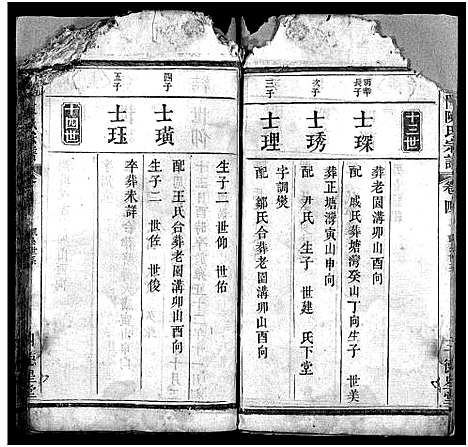 陳氏宗譜
卷四
十三世
長子
士琛
葬老園溝卯山酉向
配 戚氏葬塘灣癸山丁向生子 世美
次子
士琇
葬正塘灣寅山申向
配 尹氏 生子 世建 氏下堂
三子
士理
字調燮
配 鄒氏合葬老園溝卯山酉向
四子
士璜
生子二 世仰 世佑
配 王氏合葬老園溝卯山酉向
五子
士珏
生子二 世佐 世俊
卒葬未詳
十四世